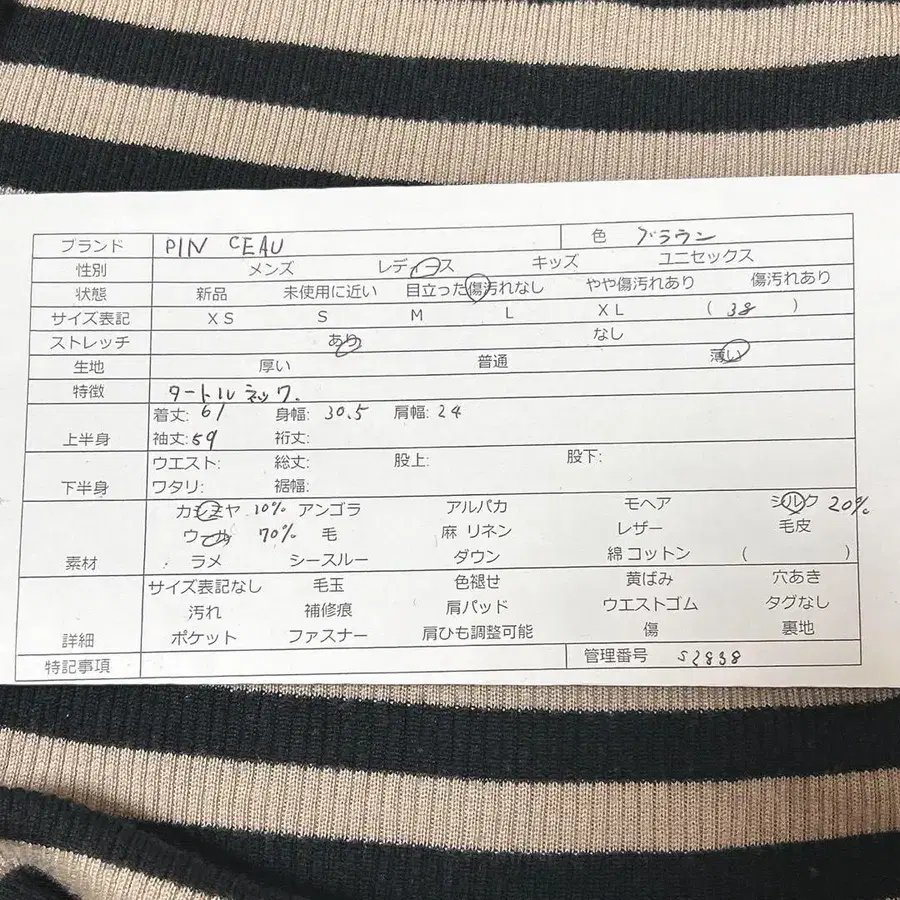 ブランド PIN CEAU 色 ブラウン
性別 メンズ レディース キッズ ユニセックス
状態 新品 未使用に近い 目立った傷汚れなし やや傷汚れあり 傷汚れあり
サイズ表記 XS S M L XL ( 38 )
ストレッチ あり なし
生地 厚い 普通 薄い
特徴 タートルネック.
着丈: 61 身幅: 30.5 肩幅: 24
上半身 袖丈: 59 裄丈:
ウエスト: 総丈: 股上: 股下:
下半身 ワタリ: 裾幅:
カシミヤ 10% アンゴラ アルパカ モヘア シルク 20%
ウール 70% 毛 麻 リネン レザー 毛皮
素材 ラメ シースルー ダウン 綿 コットン ( )
サイズ表記なし 毛玉 色褪せ 黄ばみ 穴あき
汚れ 補修痕 肩パッド ウエストゴム タグなし
詳細 ポケット ファスナー 肩ひも調整可能 傷 裏地
特記事項 管理番号 S2838